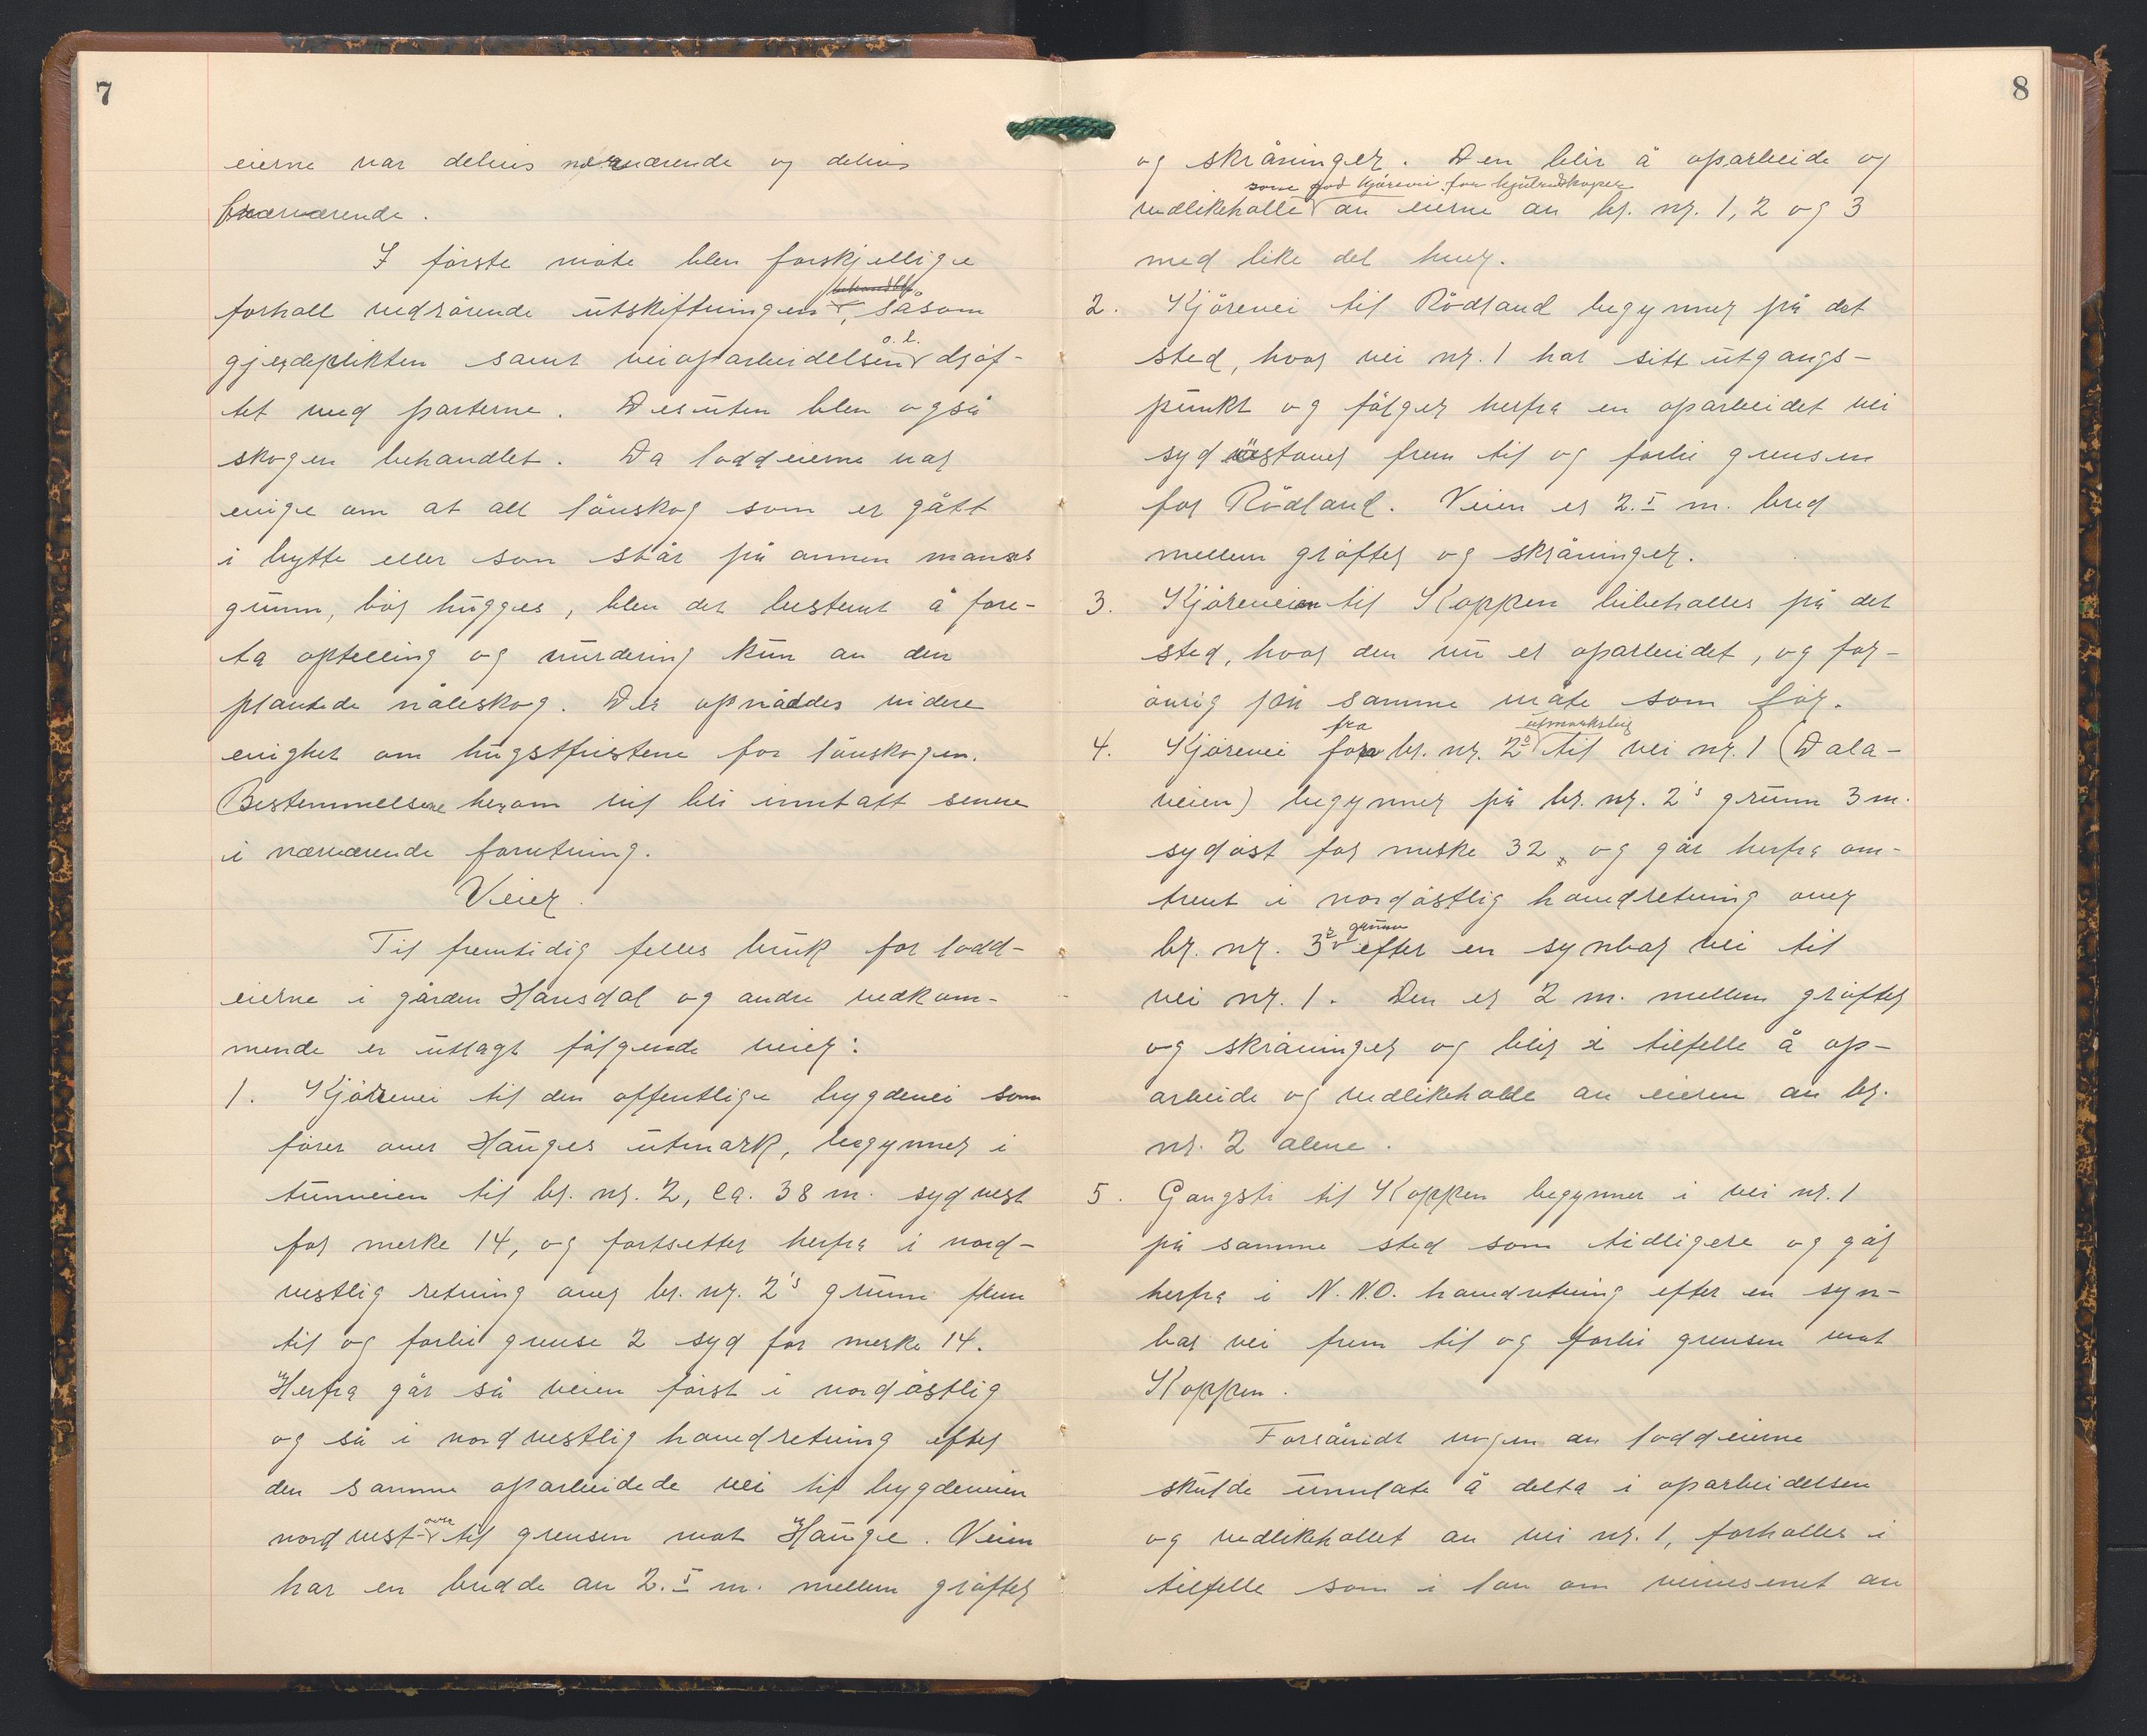 7
eierne var delvis nærværende og delvis
fraværende.
I første møte blev forskjellige
forhold vedrørende utskiftningen, såsom
gjerdeplikten samt veioparbeidelsen o.l. drøf-
tet med parterne. Desuten blev også
skogen behandlet. Da loddeierne var
enige om at all løvskog som er gått
i bytte eller som står på annen manns
grunn, bør hugges, blev det bestemt å fore-
ta optelling og vurdering kun av den
plantede nåleskog. Der opnåddes videre
enighet om hugstfristene for løvskogen.
Bestemmelsene herom vil bli inntatt senere
i nærværende forretning.
Veier.
Til fremtidig felles bruk for lodd-
eierne i gården Hausdal og andre vedkom-
mende er utlagt følgende veier:
1. Kjørevei til den offentlige bygdevei som
fører over Hauges utmark, begynner i
tunveien til br. nr. 2, ca. 38 m. sydvest
for merke 14, og fortsetter herfra i nord-
vestlig retning over br. nr. 2's grunn frem
til og forbi grense 2 syd for merke 14.
Herfra går så veien først i nordøstlig
og så i nordvestlig hovedretning efter
den samme oparbeidede vei til bygdeveien
nordvest-over til grensen mot Hauge. Veien
har en bredde av 2.5 m. mellem grøfter
8
og skråninger. Den blir å oparbeide og
som god kjørevei for hjulredskaper
vedlikeholde av eierne av br. nr. 1, 2 og 3
med like del hver.
2. Kjørevei til Rødland begynner på det
sted, hvor vei nr. 1 har sitt utgangs-
punkt og følger herfra en oparbeidet vei
sydøstover frem til og forbi grensen
for Rødland. Veien er 2.5 m. bred
mellem grøfter og skråninger.
3. Kjøreveien til Koppen bibeholdes på det
sted, hvor den nu er oparbeidet, og for-
øvrig på samme måte som før.
fra utmarksteig
4. Kjørevei br. nr. 2s til vei nr. 1 (Dala-
veien) begynner på br. nr. 2's grunn 3 m.
sydøst for merke 32, og går herfra om-
trent i nordøstlig hovedretning over
br. nr. 3s grunn efter en synbar vei til
vei nr. 1. Den er 2 m. mellem grøfter
og skråninger og blir i tilfelle å op-
arbeide og vedlikeholde av eieren av br.
nr. 2 alene.
5. Gangsti til Koppen begynner i vei nr. 1
på samme sted som tidligere og går
herfra i N.N.O. hovedretning efter en syn-
bar vei frem til og forbi grensen mot
Koppen.
Forsåvidt nogen av loddeierne
skulde unnlate å delta i oparbeidelsen
og vedlikeholdet av vei nr. 1, forholdes i
tilfelle som i lov om veivesenet av